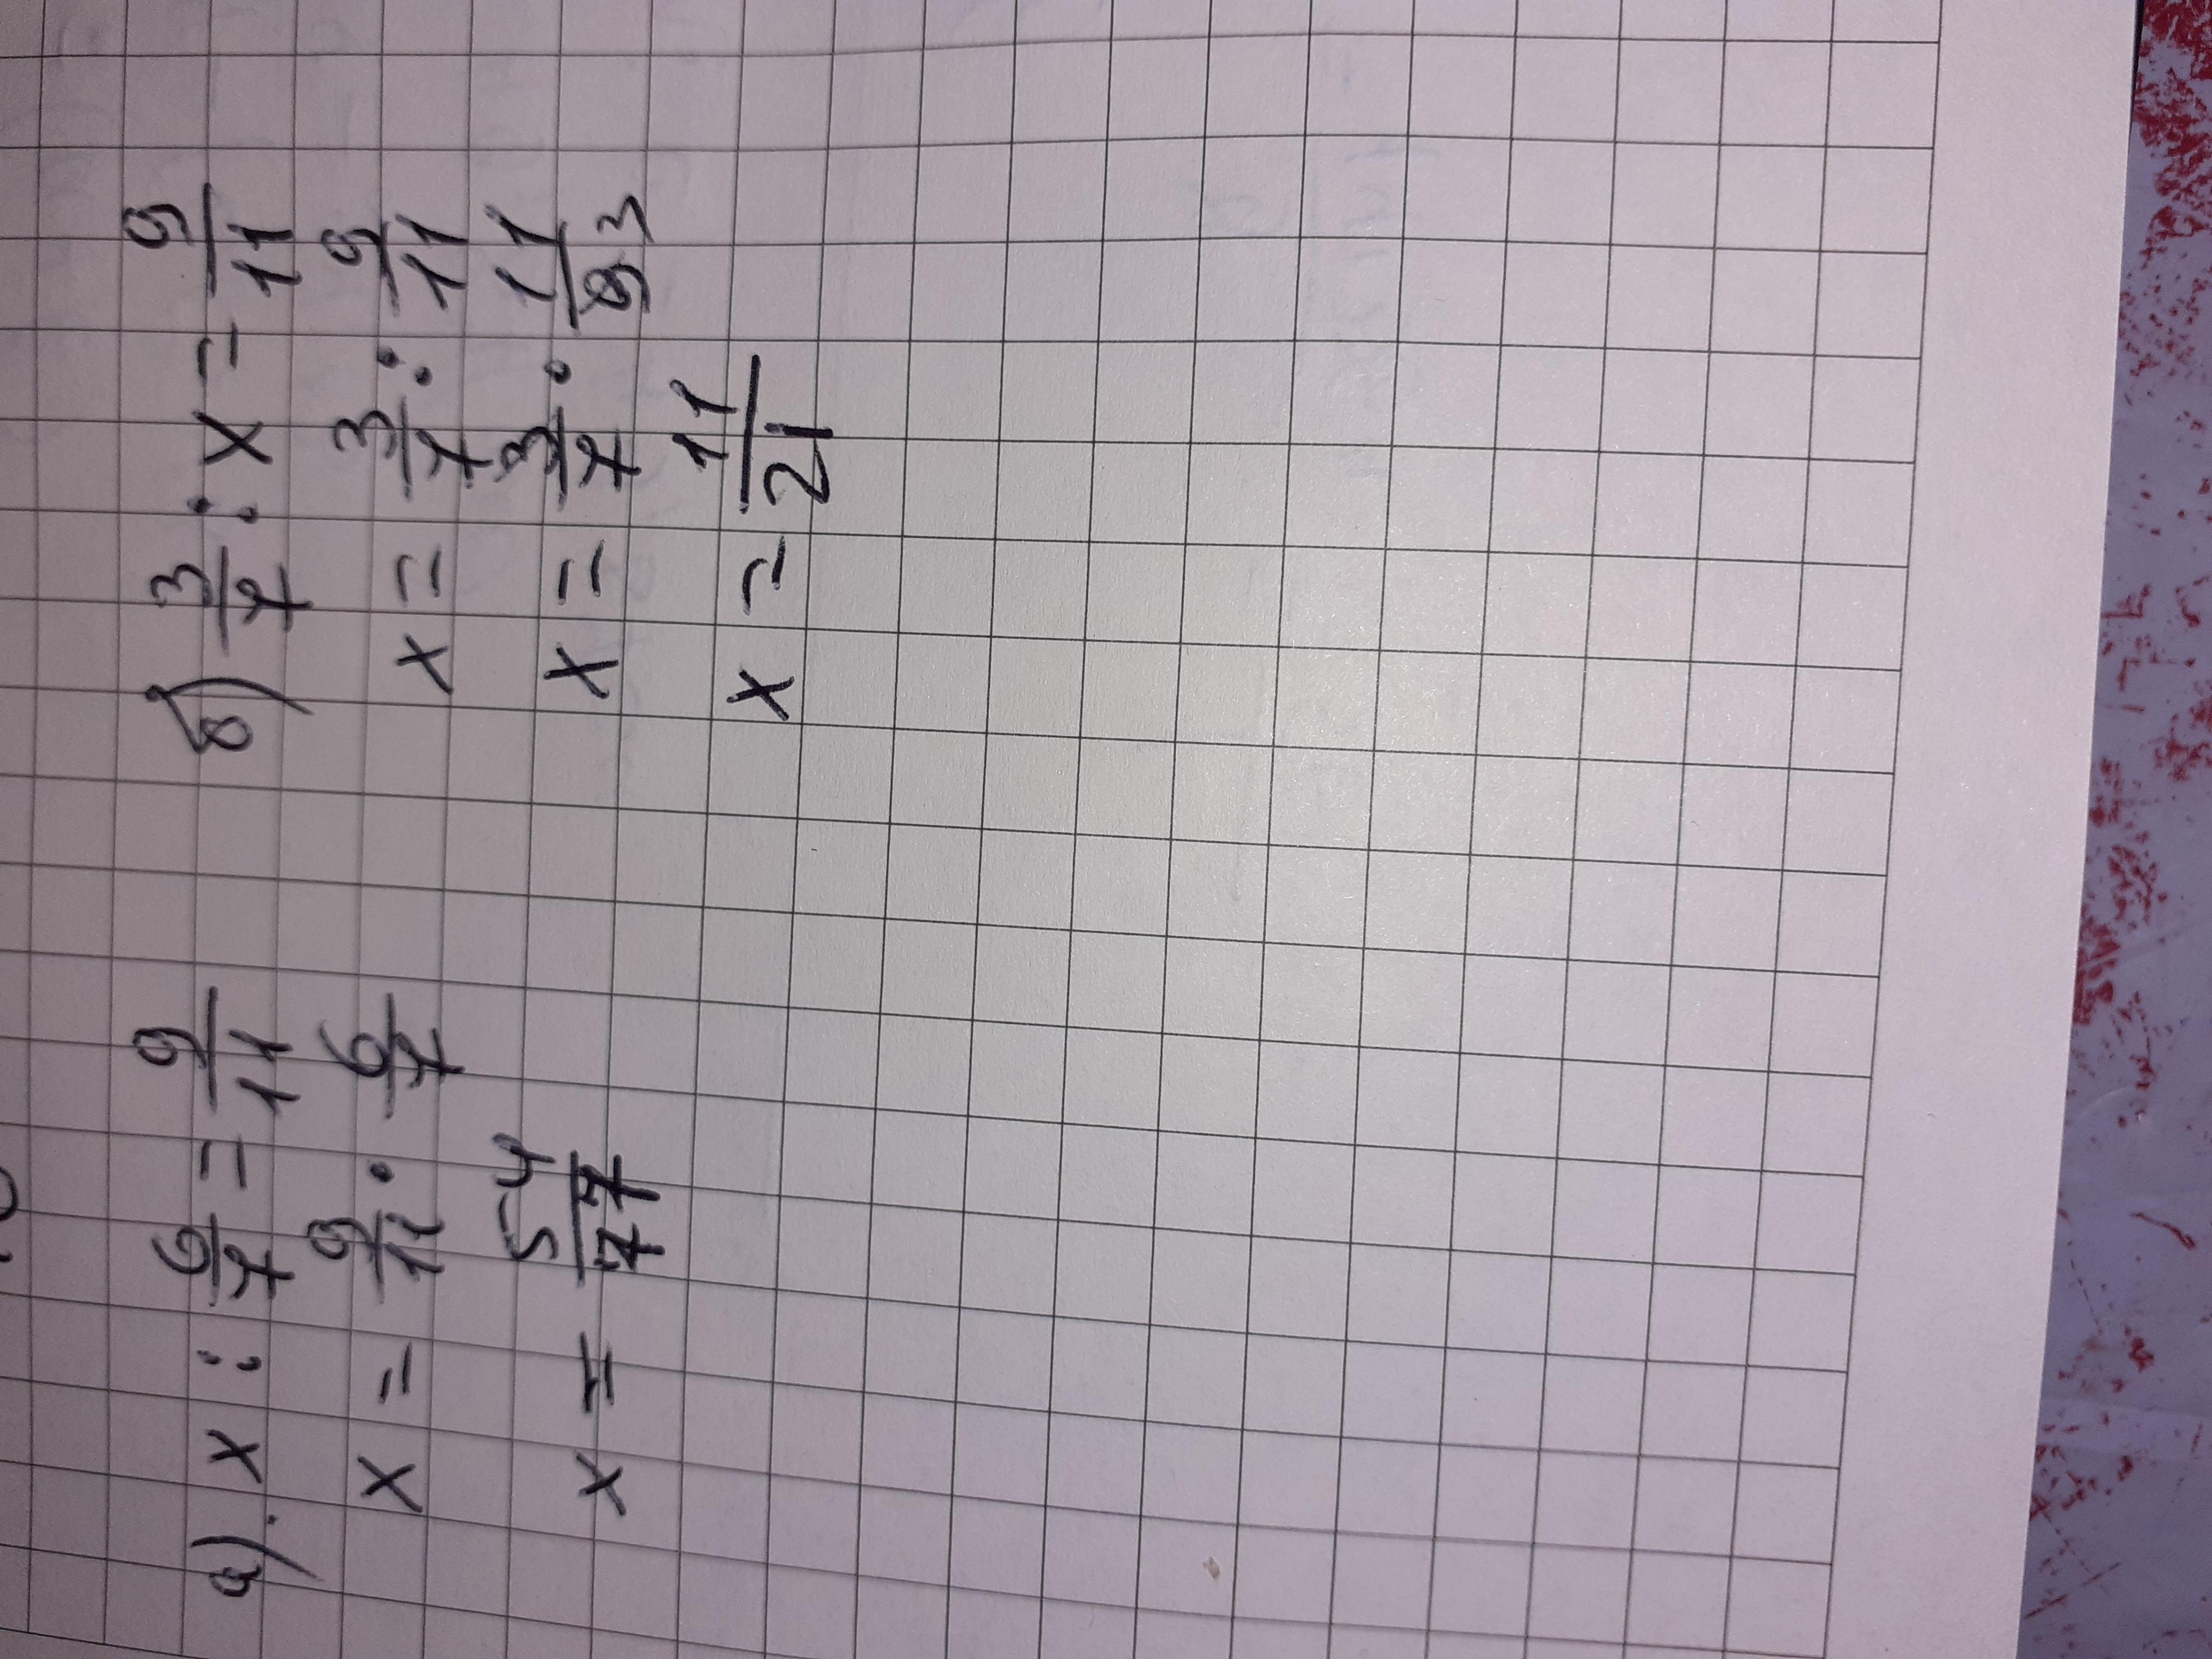 а). x : 6/7 = 9/11
x = 9/11 · 6/7
x = 54/77
б) 3/7 : x = 9/11
x = 3/7 : 9/11
x = 3/7 · 11/9 3
x = 11/21